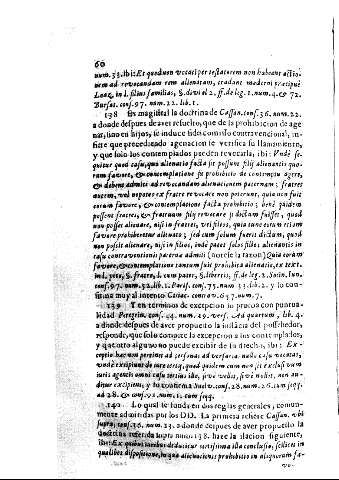 60
num. 35. ibi: Et quod non vocati per testatorem non habeant actio-
nem ad revocandam rem alienatam, tradunt moderni præcipuè
in l. filius familias, §. divi el 2. ff. de leg. 1. num. 4. & 72.
Bursat. cons. 97. num. 22. lib. 1.
138 Es magistral la doctrina de Cassan. cons. 36. num. 22.
a donde despues de aver resuelto, que de la prohibicion de age
nar, sino en hijos, se induce fideicomiso contravencional, in-
fiere que precediendo agenacion se verifica su llamamiento,
y que solo los contemplados pueden revocarla, ibi: Unde se-
quitur quod casu, quo alienatio facta sit possunt filij alienantis quo-
rum favore, & contemplatione fit prohibitio de contemptu agere,
& debent admitti ad revocandam alienationem paternam; fratres
autem, vel nepotes ex fratre revocare non poterunt, quia non fuit
eorum favore, & contemplatione facta prohibitio; bene quidem
possent fratres, & fratruum filij revocare si dictum fuisset, quod
non posset alienare, nisi in fratres, vel filios, quia tunc etiam eorum
favore prohiberetur alienatio; sed cum solum fuerit dictum, quod
non possit alienare, nisi in filios, inde patet solos filios alienantis in
casu contraventionis paternæ admitti (notese la razon) Quia eorum
favore, & contemplatione tantum fuit prohibita alienatio, ex text.
in l. pater, §. fratre, l. cum pater, §. libertis, ff. de leg. 2. Socin. Iun.
cons. 97. num. 52. lib. 2. Paris. cons. 75. num. 33. lib. 2. y lo con-
firma muy al intento cons. 637. num. 7.
139 Y en terminos de excepcion lo prueba con puntua-
lidad Peregrin. cons. 44. num. 19. vers. Ad quartum, lib. 4.
a donde despues de aver propuesto la instācia del posseedor,
responde, que solo compete la excepcion a los contemplados,
y que otro alguno no puede excibir de su drecho, ibi: Ex-
ceptio hæc non pertinet ad personas ad versaria nullo casu vocatas,
unde excipiunt de iure tertij, quod quidem cum non sit exclusivum
iuris agentis omni casu tertius ille, sive velit, sive nolit, non au-
ditur excipiens, y lo confirma cons. 28. num. 26. cum seqq.
ad 28. & cons. 92. num. 1. cum seqq.
140 Lo qual se funda en dos reglas generales, comun-
mente admitidas por los DD. La primera refiere Cassan. ubi
supra, cons. 36. num. 23. a donde despues de aver propuesto la
doctrina referida supra num. 138. haze la ilacion siguiente,
ibi: Ex quibus omnibus deducitur certissima illa conclusio, scilicet in
qualibet dispositione, in qua alienationis prohibitio in aliquorum fa-
vo-